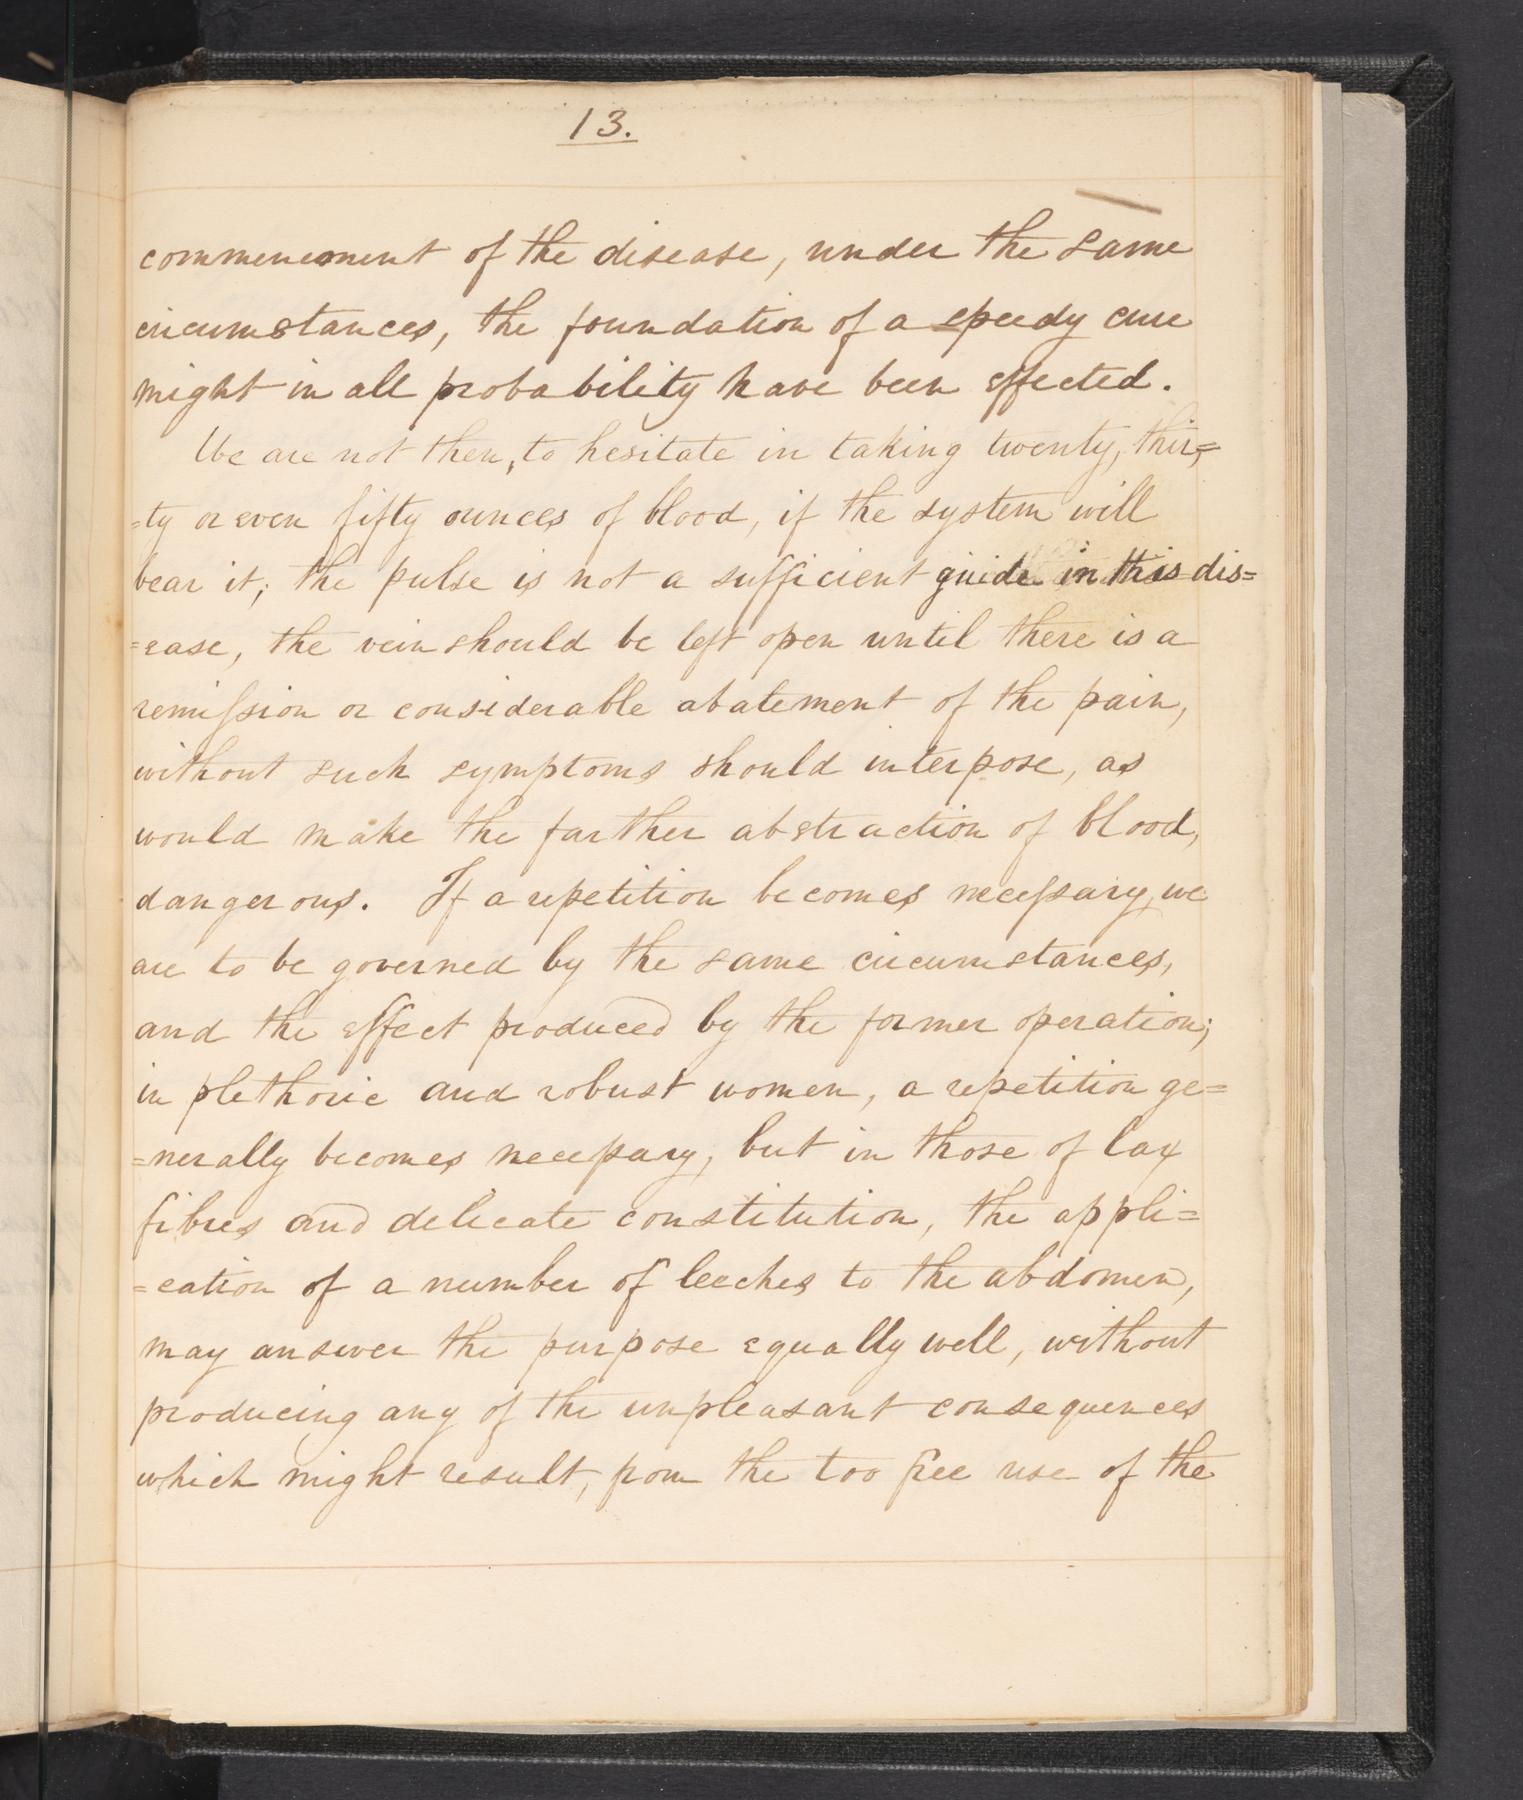 13.
commencement of the disease, under the same
circumstances, the foundation of a speedy cure
might in all probability have been effected.
We are not then, to hesitate in taking twenty, thir=
=ty or even fifty ounces of blood, if the system will
bear it; the pulse is not a sufficient guide in this dis=
=ease, the vein should be left open until there is a
remission or considerable abatement of the pain,
without such symptoms should interpose, as
would make the farther abstraction of blood,
dangerous. If a repetition becomes necessary, we
are to be governed by the same circumstances,
and the effect produced by the former operation;
in plethoric and robust women, a repetition ge=
=nerally becomes necessary, but in those of lax
fibres and delicate constitution, the appli=
=cation of a number of leeches to the abdomen,
may answer the purpose equally well, without
producing any of the unpleasant consequences
which might result, from the too free use of the